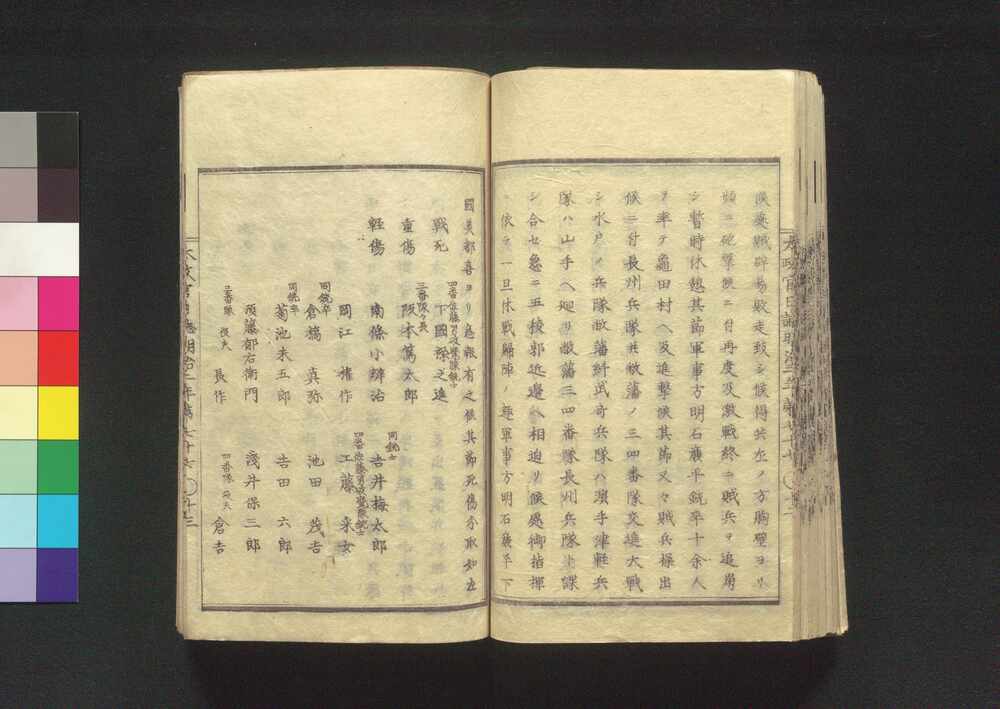 候處賊辟易敗走致シ候得共左ノ方胸壁ヨリ
頻ニ砲撃候ニ付再度及激戰終ニ賊兵ヲ追崩
シ暫時休憩其節軍事方明石廣平銃卒十余人
ヲ率テ龜田村ヘ及進撃候其節又々賊兵操出
候ニ付長州兵隊共敝藩ノ三四番隊交進大戰
シ水戸ノ兵隊敝藩糾武奇兵隊ハ濱手津輕兵
隊ハ山手ヘ廻リ敝藩三四番隊長州兵隊ト謀
シ合セ急ニ五稜郭近邊ヘ相迫リ候處御指揮
ニ依テ一旦休戰歸陣ノ趣軍事方明石廣平下
國美都喜ヨリ急報有之候其節死傷分取如左
戰死 四番佐藤男破隊銃士 下國琢之進
重傷 三番隊々長 阪本篤太郎 同銃士 吉井梅太郎
輕傷 南條小辨治 四番佐藤男破隊銃士 工藤 采女
岡江 積作 池田 茂吉
同銃卒 倉橋 真弥 吉田 六郎
同銃卒 菊池末五郎 淺井保三郎
須藤郁右衛門
三番隊 役夫 長作 四番隊 役夫 倉吉
太政官日誌明治二年第七十七